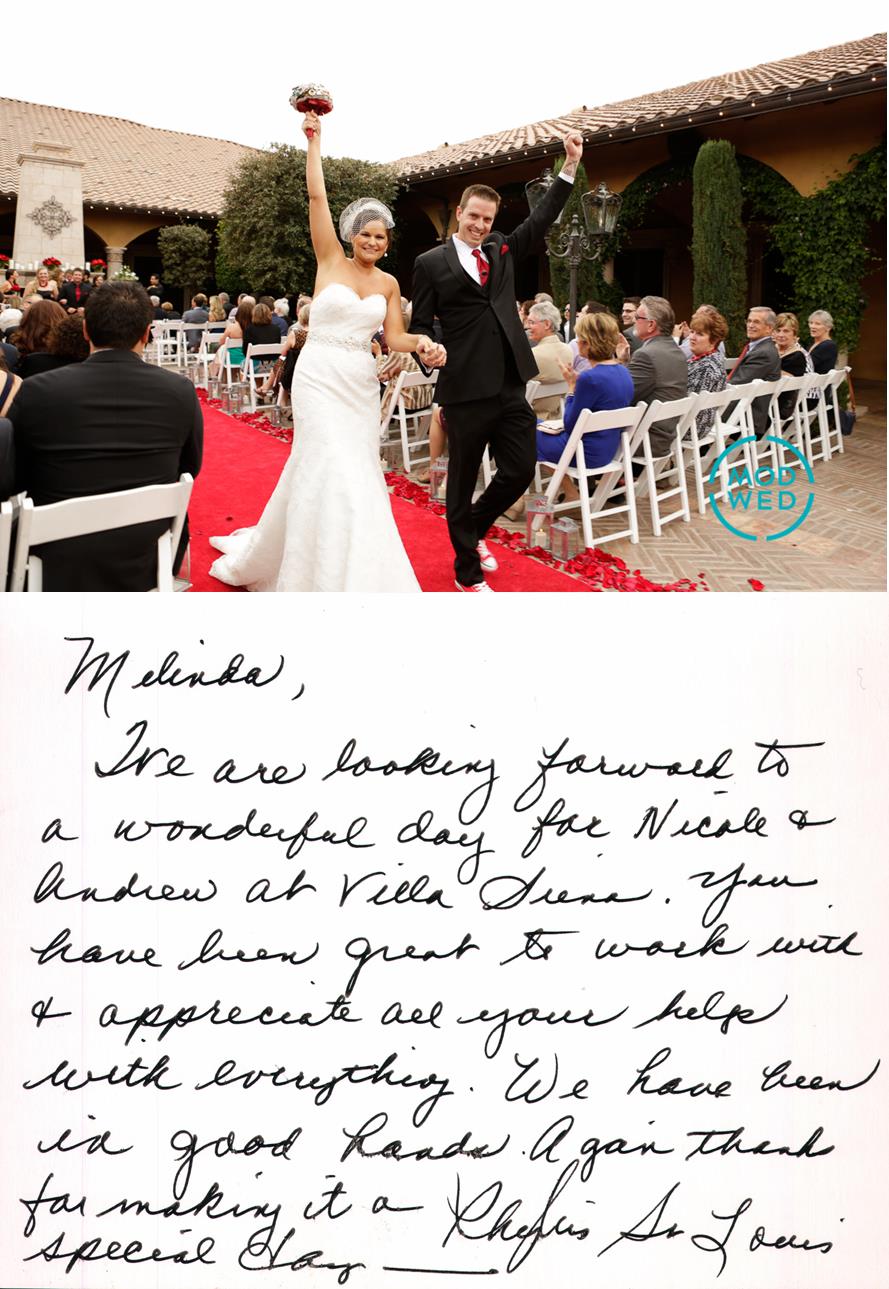 MOD
WED
Melinda,
We are looking forward to
a wonderful day for Nicole &
Andrew at Villa Siena. You
have been great to work with
& appreciate all your help
with everything. We have been
in good hands. Again thank
for making it a
special day — Phyllis St Louis